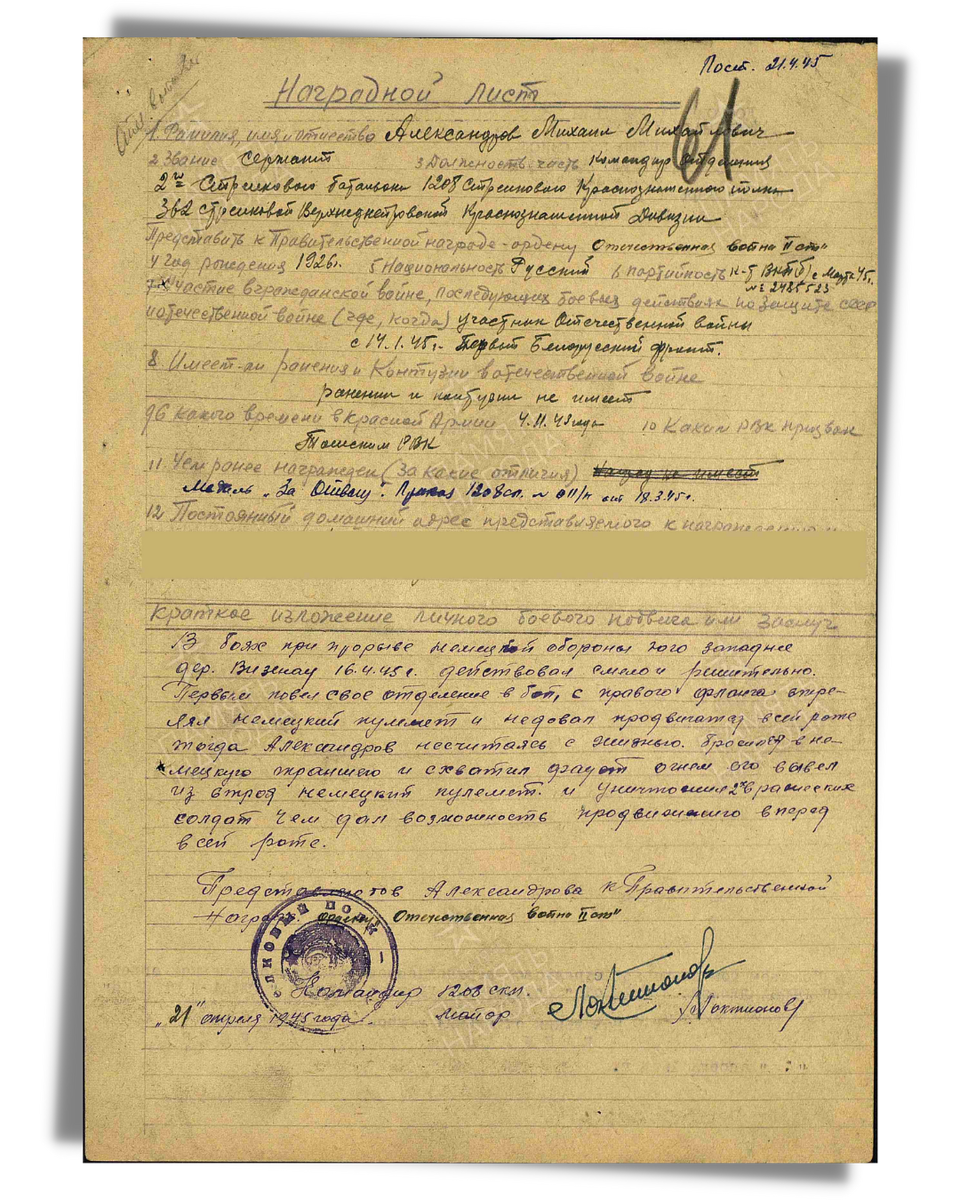 Пост. 21.4.45
61
Наградной лист
1. Фамилия, имя и отчество Александров Михаил Михайлович
2 Звание сержант 3 Должность, часть командир отделения
2го Стрелкового батальона 1208 Стрелкового Краснознаменного полка
362 стрелковой Верхнеднепровской Краснознаменной Дивизии
Представить к Правительственной награде - ордену Отечественная война II ст"
4 Год рождения 1926г. 5 Национальность Русский 6 партийность к-т ВКП(б) с Марта 45г.
№ 2485523
7 Участие в гражданской войне, последующих боевых действиях по защите СССР
и отечественной войне (где, когда) участник Отечественной войны
с 14.1.45г. Первый Белорусский фронт.
8. Имеет-ли ранения и контузии в отечественной войне
ранении и контузии не имеет
9 С какого времени в Красной Армии 4.11.43 года 10 Каким РВК призван
РВК
11. Чем ранее награжден (за какие отличия) Наград не имеет
Медаль „За Отвагу". Приказ 1208сп. № 011/н от 18.3.45г.
12. Постоянный домашний адрес представляемого к награждению и
Краткое изложение личного боевого подвига или заслуг
В боях при прорыве немецкой обороны юго западнее
дер. Визенау 16.4.45г. действовал смело и решительно.
Первым повел свое отделение в бой, с правого фланга стре-
лял немецкий пулемет и недовал продвигатся всей роте
тогда Александров несчитаясь с жизнью. бросился в не-
мецкую траншею и схватил фауст огнем его вывел
из строя немецкий пулемет. и уничтожил 2х вражеских
солдат Чем дал возможность продвижению вперед
всей роте.
Александрова к Правительственной
ордену Отечественная война II ст"
СТРЕЛКОВЫЙ ПОЛК
Командир 1208 скп.
„21" апреля 1945 года. майор Локтионов